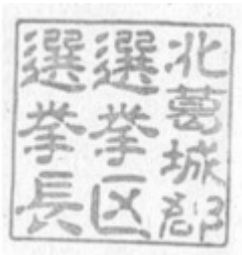 北葛城郡
選挙区
選挙長